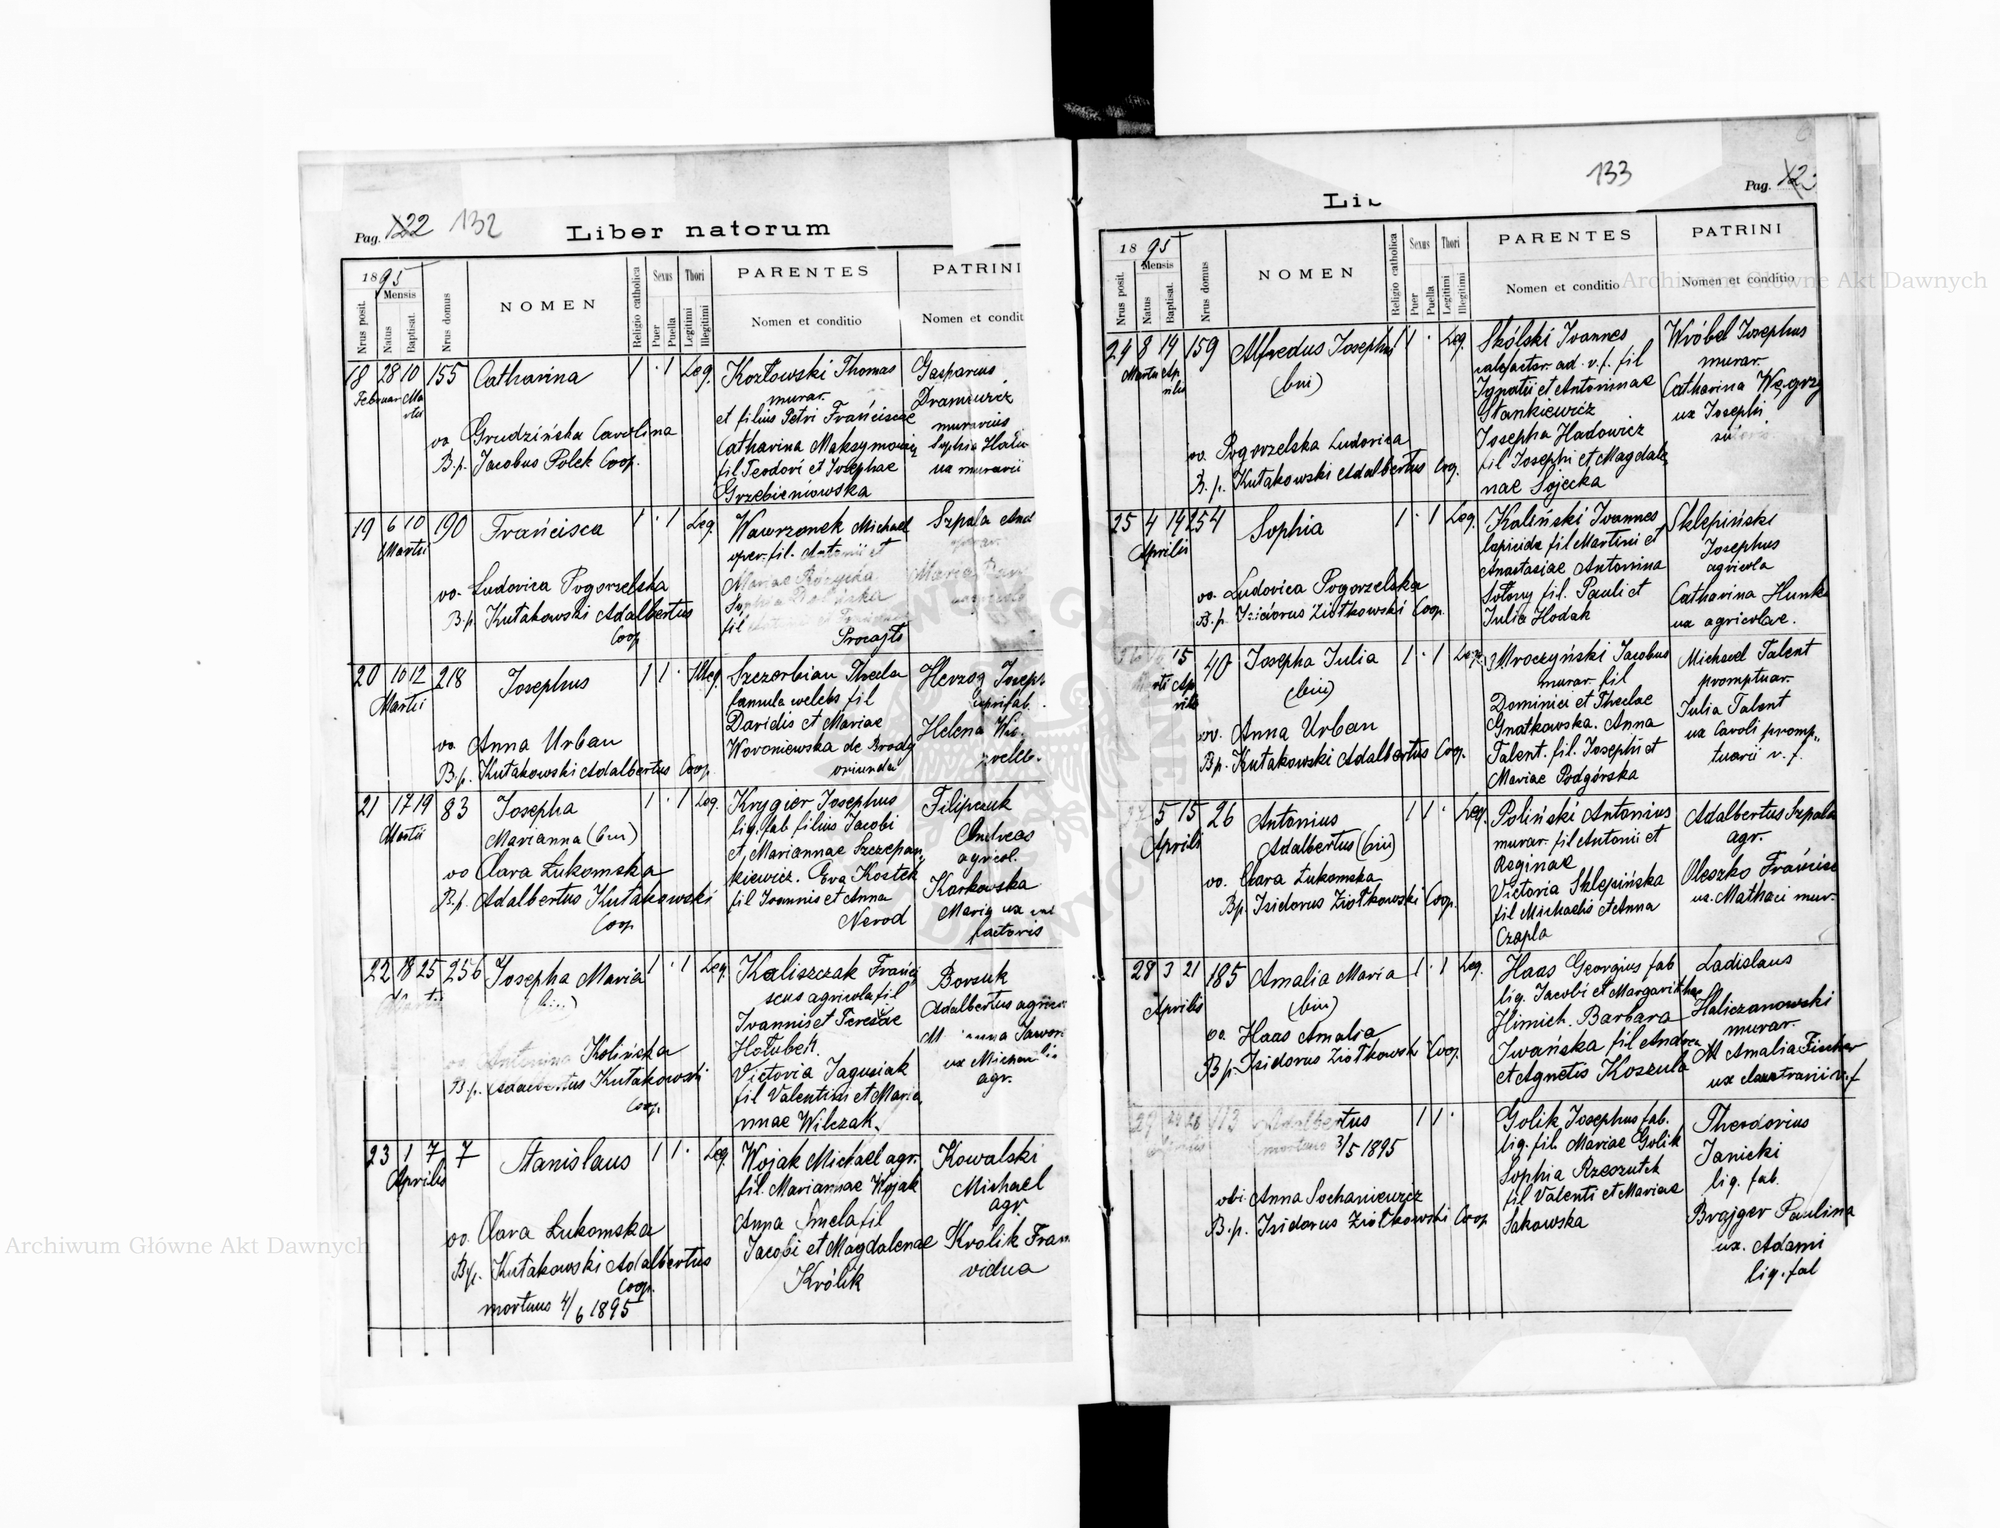 Pag. 122 132
Liber natorum
1895
Mensis
Nrus posit.
Natus
Baptisat.
Nrus domus
NOMEN
Religio catholica
Sexus
Puer
Puella
Thori
Legitimi
Illegitimi
PARENTES
Nomen et conditio
PATRINI
Nomen et condit
18 28 10 155 Catharina 1 · 1 Leg.
Februar Martii
vo. Grudzińska Carolina
B.p. Jacobus Polek Coop.
Kozłowski Thomas
murar.
et filius Petri Franciscae
Catharina Maksymowicz
fil Teodori et Josephae
Grzebieniowska
Gasparius
murarius
Sophia
ux murarii
19 6 10 190 Francisca 1 · 1 Leg.
Martii
vo. Ludovica Pogorzelska
B.p. Kułakowski Adalbertus
Coop
Wawrzonek Michael
oper. fil. Antonii et
Mariae
Sophia
fil
Szpala And
Maria
20 10 12 218 Josephus 1 1 · Illeg.
Martii
vo. Anna Urban
B.p. Kułakowski Adalbertus Coop.
Szczerbian Thecla
famula fil
Davidis et Mariae
Woroniewska de Brody
oriunda
Herzog Joseph
Helena
21 17 19 83 Josepha 1 · 1 Leg.
Martii
Marianna (bin)
vo Clara Łukomska
B.p. Adalbertus Kułakowski
Coop
Krygier Josephus
lig. fab filius Jacobi
et Mariannae Szczepan
kiewicz. Eva Kostek
fil Joannis et Anna
Nerod
Filipczuk
Andreas
agricol.
Karkowska
Maria ux
factoris
22 18 25 256 Josepha Maria 1 · 1 Leg.
Martii
vo. Antonina Kolińska
B.p. Adalbertus Kułakowski
Coop.
Kaliszczak Franci
scus agricola fil
Joannis et Teresae
Hołubek.
Victoria Jagusiak
fil Valentini et Maria
nnae Wilczak.
Borsuk
Adalbertus agric
ux Michaelis
agr.
23 1 7 7 Stanislaus 1 1 · Leg.
Aprilis
vo. Clara Łukomska
B.p. Kułakowski Adalbertus
Coop.
mortuus 4/6 1895
Wojak Michael agr.
fil. Mariannae Wojak
Anna Smela fil
Jacobi et Magdalenae
Królik
Kowalski
Michael
agr.
Królik Fran
vidua
133
Pag. 12
Lib
1895
Mensis
Nrus posit.
Natus
Baptisat.
Nrus domus
NOMEN
Religio catholica
Sexus
Puer
Puella
Thori
Legitimi
Illegitimi
PARENTES
Nomen et conditio
PATRINI
Nomen et conditio
24 8 14 159 Alfredus Josephus 1 · Leg.
Martii Aprilis
(bin)
vo. Pogorzelska Ludovica
B.p. Kułakowski Adalbertus Coop.
Skólski Joannes
calefactor ad. v.f. fil
Ignatii et Antoninae
Stankiewicz
Josepha Hadowicz
fil Josephi et Magdale
nae Sojecka
Wróbel Josephus
murar.
Catharina Węgrzy
ux Josephi
25 4 14 254 Sophia 1 · 1 Leg.
Aprilis
vo. Ludovica Pogorzelska
B.p. Isidorus Ziółkowski Coop.
Kaliński Joannes
lapicida fil Martini et
Anastasiae Antonina
Sołtny fil. Pauli et
Julia Hodak
Sklepiński
Josephus
agricola
Catharina Hunk
ux agricolae.
15 40 Josepha Julia 1 · 1 Leg.
(bin)
vo. Anna Urban
B.p. Kułakowski Adalbertus Coop.
Mroczyński Jacobus
murar. fil
Dominici et Theclae
Gnatkowska. Anna
Talent. fil. Josephi et
Mariae Podgórska
Michael Talent
promptuar.
Julia Talent
ux Caroli promp
tuarii v. f.
5 15 26 Antonius 1 1 · Leg.
Aprilis
Adalbertus (bin)
vo. Clara Łukomska
B.p. Isidorus Ziółkowski Coop.
Poliński Antonius
murar. fil Antonii et
Reginae
Victoria Sklepińska
fil Michaelis et Anna
Czapla
Adalbertus Szpala
agr.
Oleszko Francisc
ux. Mathaei mur.
28 3 21 185 Amalia Maria 1 · 1 Leg.
Aprilis
(bin)
vo. Haas Amalia
B.p. Isidorus Ziółkowski Coop.
Haas Georgius fab
lig. Jacobi et Margarithae
Himich. Barbara
Iwańska fil Andrea
et Agnetis Koszula
Ladislaus
Haliczanowski
murar.
Amalia Fischer
113 Adalbertus 1 1 ·
mortuus 3/5 1895
obi. Anna Sochaniewicz
B.p. Isidorus Ziółkowski Coop
Golik Josephus fab.
lig. fil Mariae Golik
Sophia Rzeszutek
fil Valenti et Mariae
Sakowska
Theodorius
Janicki
lig. fab.
Brajger Paulina
ux. Adami
lig. fab
Archiwum Główne Akt Dawnych
Archiwum Główne Akt Dawnych